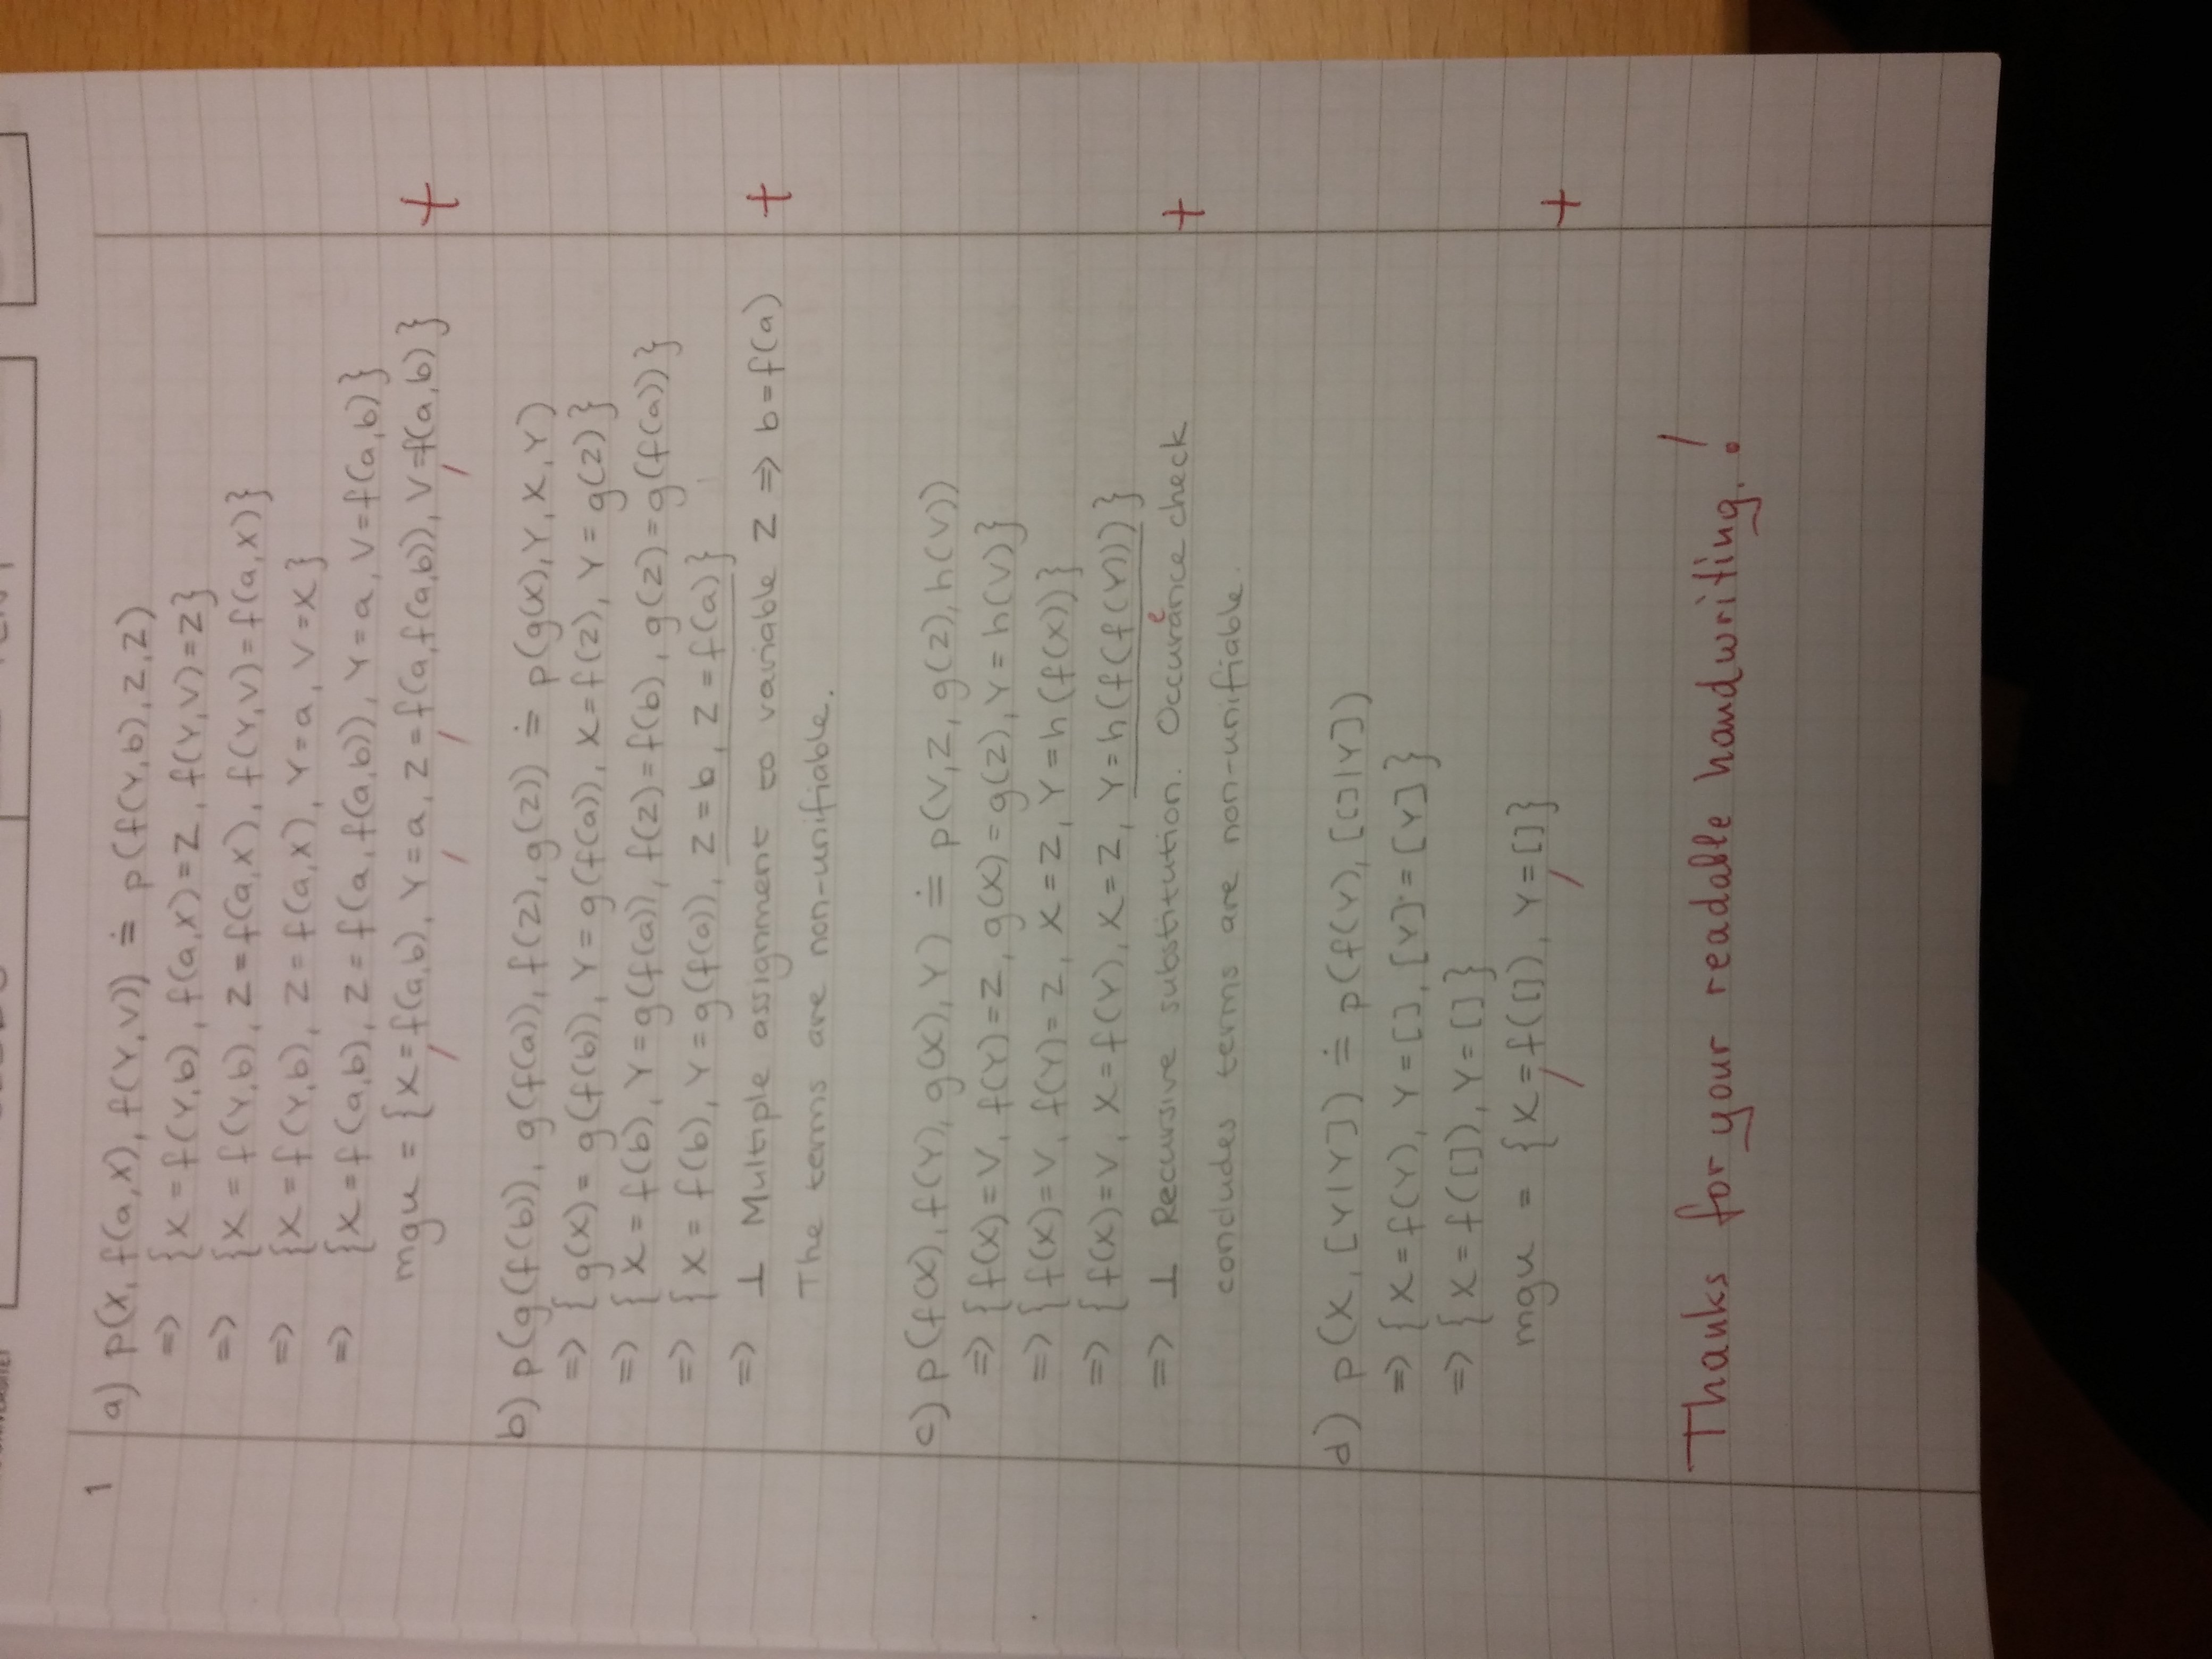 1
a) p(X, f(a,X), f(Y,V)) ≐ p(f(Y,b), Z, Z)
=> {X = f(Y,b), f(a,X) = Z, f(Y,V) = Z}
=> {X = f(Y,b), Z = f(a,X), f(Y,V) = f(a,X)}
=> {X = f(Y,b), Z = f(a,X), Y = a, V = X}
=> {X = f(a,b), Z = f(a, f(a,b)), Y = a, V = f(a,b)}
mgu = {X = f(a,b), Y = a, Z = f(a, f(a,b)), V = f(a,b)} +
b) p(g(f(b)), g(f(a)), f(Z), g(Z)) ≐ p(g(X), Y, X, Y)
=> {g(X) = g(f(b)), Y = g(f(a)), X = f(Z), Y = g(Z)}
=> {X = f(b), Y = g(f(a)), f(Z) = f(b), g(Z) = g(f(a))}
=> {X = f(b), Y = g(f(a)), Z = b, Z = f(a)}
=> ⊥ Multiple assignment to variable Z => b = f(a) +
The terms are non-unifiable.
c) p(f(X), f(Y), g(X), Y) ≐ p(V, Z, g(Z), h(V))
=> {f(X) = V, f(Y) = Z, g(X) = g(Z), Y = h(V)}
=> {f(X) = V, f(Y) = Z, X = Z, Y = h(f(X))}
=> {f(X) = V, X = f(Y), X = Z, Y = h(f(f(Y)))}
=> ⊥ Recursive substitution. Occurance check +
e
concludes terms are non-unifiable.
d) p(X, [Y|Y]) ≐ p(f(Y), [[]|Y])
=> {X = f(Y), Y = [], [Y] = [Y]}
=> {X = f([]), Y = []}
mgu = {X = f([]), Y = []} +
Thanks for your readable handwriting!